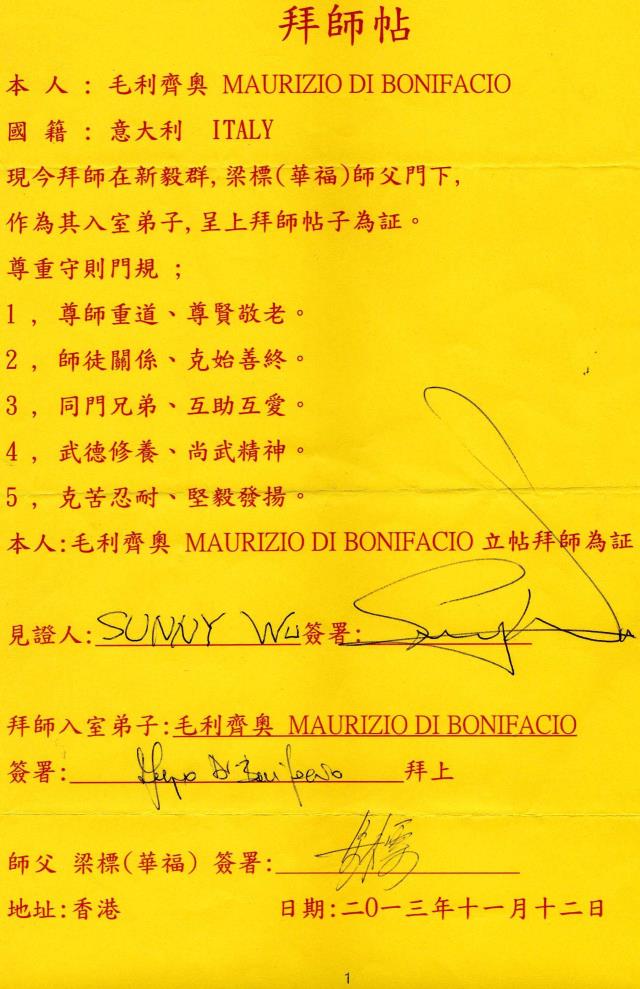 拜師帖
本 人 : 毛利齊奧 MAURIZIO DI BONIFACIO
國 籍 : 意大利 ITALY
現今拜師在新毅群, 梁標(華福)師父門下,
作為其入室弟子, 呈上拜師帖子為証。
尊重守則門規 ;
1 , 尊師重道、尊賢敬老。
2 , 師徒關係、克始善終。
3 , 同門兄弟、互助互愛。
4 , 武德修養、尚武精神。
5 , 克苦忍耐、堅毅發揚。
本人:毛利齊奧 MAURIZIO DI BONIFACIO 立帖拜師為証
見證人: SUNNY WU 簽署:
拜師入室弟子: 毛利齊奧 MAURIZIO DI BONIFACIO
簽署: Di Bonifacio 拜上
師父 梁標(華福) 簽署:
地址:香港 日期:二0一三年十一月十二日
1